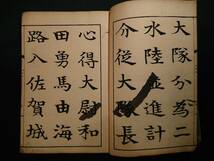 大隊分為二
水陸並進計
分従大隊長
心得大尉和
田勇馬由海
路入佐賀城